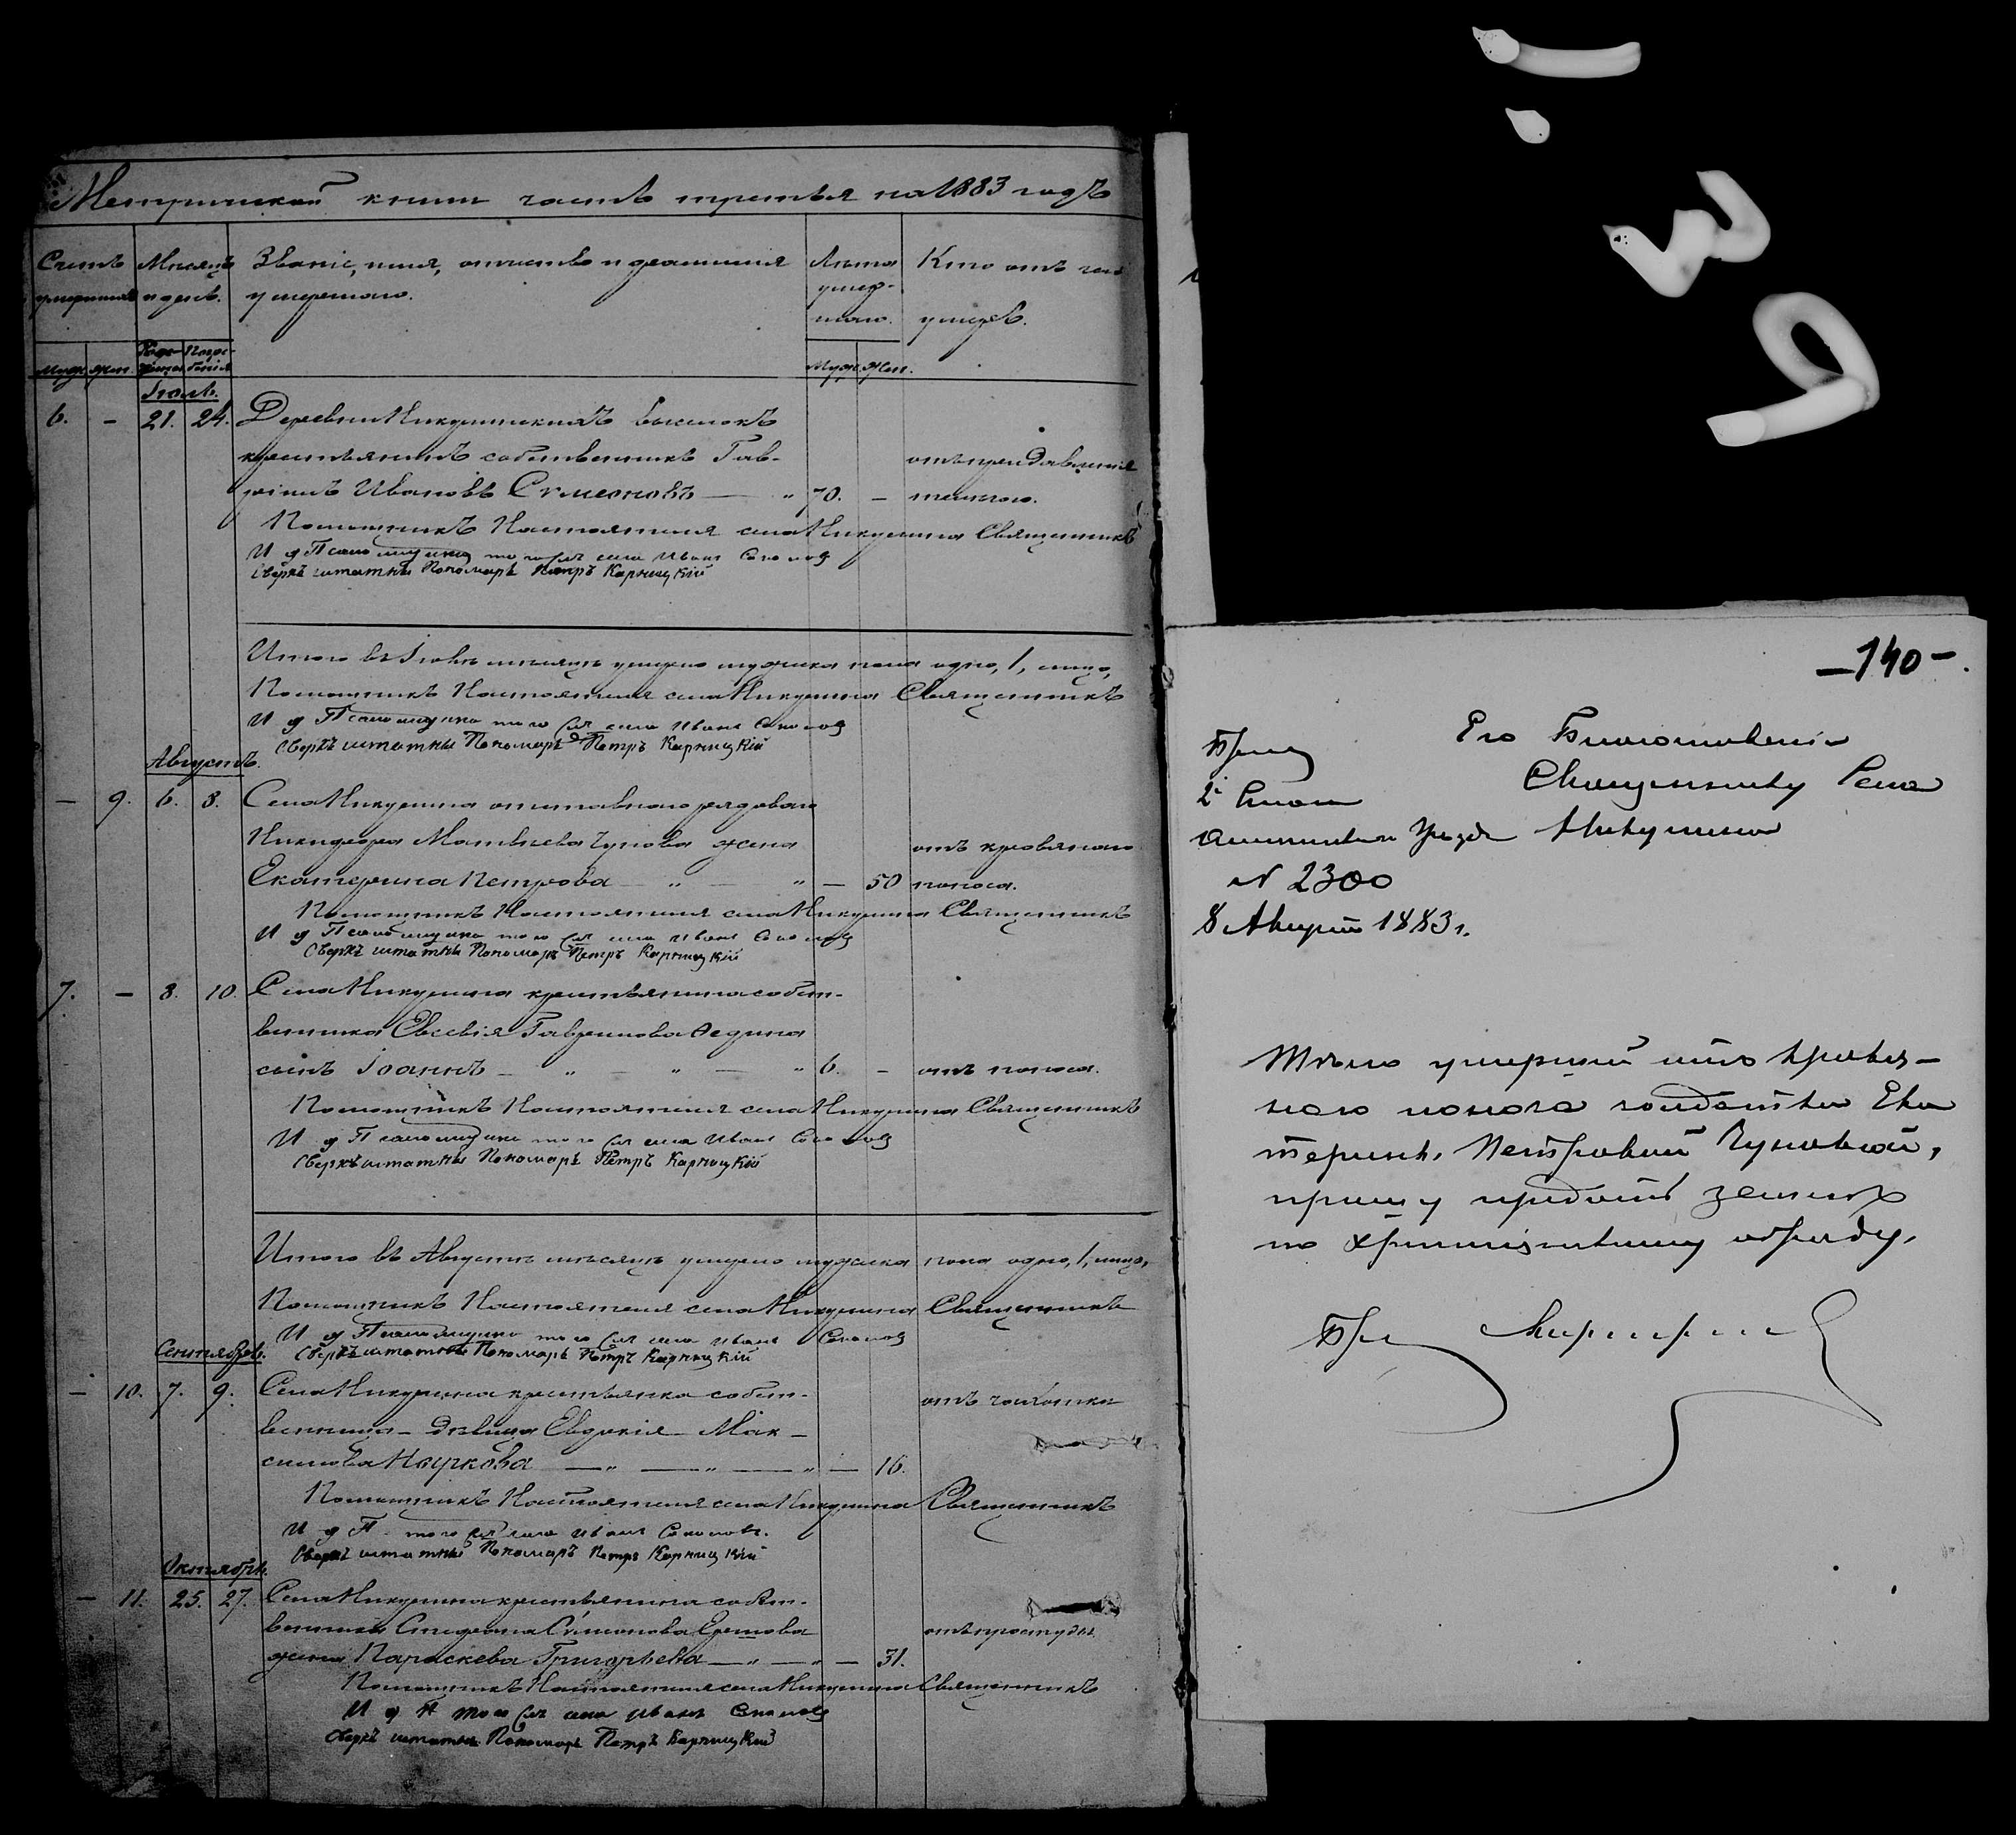 Метрической книги часть третья на 1883 годъ
Счетъ умершихъ
Мѣсяцъ и день.
Званіе, имя, отчество и фамилія умершаго.
Лѣта умершаго.
Кто отъ чего умеръ.
муж. жен.
муж. жен.
Іюль.
6. — 21. 24. Деревни Никулинскихъ выселокъ
крестьянинъ собственникъ Гав-
ріилъ Ивановъ Симеоновъ — „ 70. —
Помощникъ Настоятеля села Никулина Священникъ
И д Псаломщика того же села Иванъ Соколовъ
Сверхъ штатный Пономарь Петръ Карницкій
Итого въ Іюлѣ мѣсяцѣ умерло мужска пола одно, 1, лицо,
Помощникъ Настоятеля села Никулина Священникъ
И д Псаломщика того же села Иванъ Соколовъ
Сверхъ штатный Пономарь Петръ Карницкій
Августъ.
— 9. 6. 8. Села Никулина отставнаго рядоваго
Никифора Матвѣева Чунова жена отъ кроваваго
Екатерина Петрова „ — „ — 50 поноса.
Помощникъ Настоятеля села Никулина Священникъ
И д Псаломщика того же села Иванъ Соколовъ
Сверхъ штатный Пономарь Петръ Карницкій
7. — 8. 10. Села Никулина крестьянина собст-
венника Евсевія Гавриилова
сынъ Іоаннъ — „ — „ — „ 6. — отъ поноса.
Помощникъ Настоятеля села Никулина Священникъ
И д Псаломщика того же села Иванъ Соколовъ
Сверхъ штатный Пономарь Петръ Карницкій
Итого въ Августѣ мѣсяцѣ умерло мужска пола одно, 1, лицо,
Помощникъ Настоятеля села Никулина Священникъ
И д Псаломщика того же села Иванъ Соколовъ
Сверхъ штатный Пономарь Петръ Карницкій
Сентябрь.
— 10. 7. 9. Села Никулина крестьянка собст- отъ чахотки
венница — дѣвица Евдокія Мак-
симова — „ — „ — „ — 16.
Помощникъ Настоятеля села Никулина Священникъ
И д П. того же села Иванъ Соколовъ.
Сверхъ штатный Пономарь Петръ Карницкій
Октябрь.
— 11. 25. 27. Села Никулина крестьянина собст-
венника Симонова отъ простуды.
жена Параскева Григорьева — „ — „ — 31.
Помощникъ Настоятеля села Никулина Священникъ
И д П того же села Иванъ Соколовъ
Сверхъ штатный Пономарь Петръ Карницкій
— 140 — .
Его Благословенію
Священнику Села
Никулина
2 Стана
Уѣзда
N 2300
8 Августа 1883 г.
Тѣло умершей отъ кровав-
наго поноса солдатки Ека
терины Петровой Чуновой,
прошу предать землѣ
по христіанскому обряду.